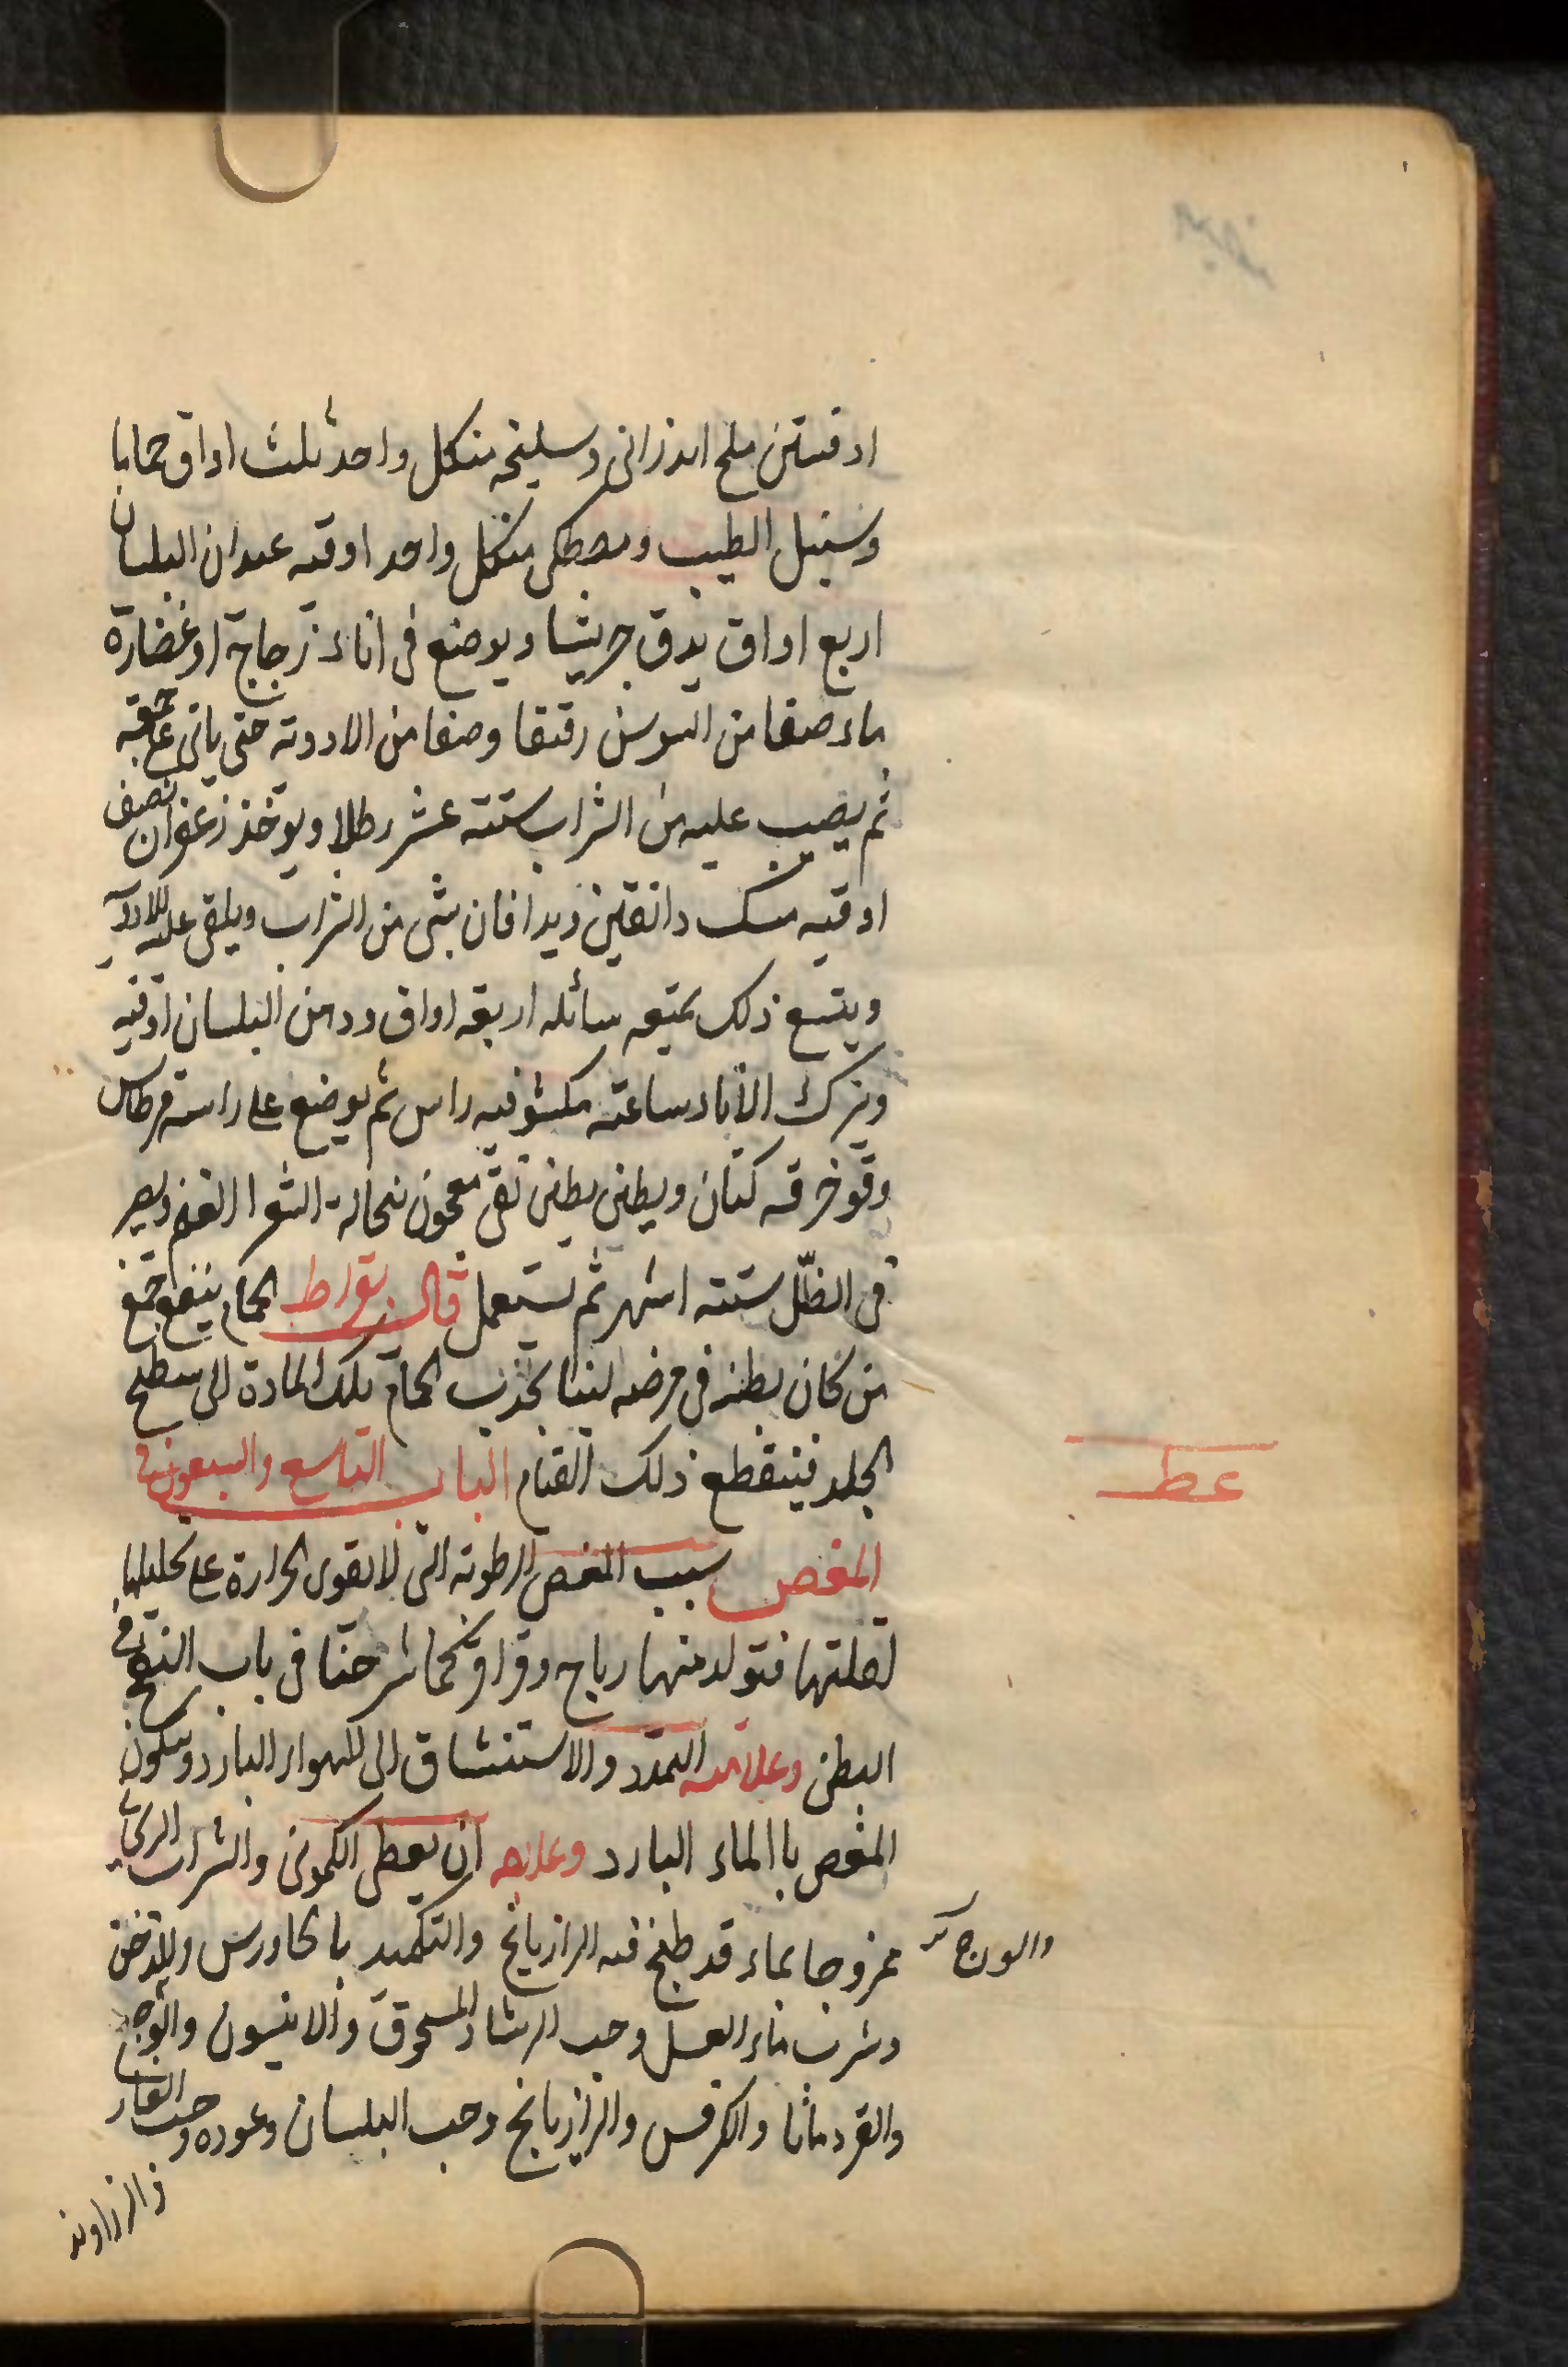 اوقيتين ملح اندرانى وسليخه منكل واحد ثلث اواق حماما
وسنبل الطيب ومصطكى منكل واحد اوقيه عيدان البلسان
اربع اواق يدق جريشا ويوضع فى اناء زجاج او غضارة
ماء صفا من السوسن رقيقا وصفا من الادوية حتى ياتى على جميعه
ثم يصب عليه من الشراب ستته عشر رطلا ويوخذ زعفران نصف
اوقيه مسك دانقين ويدافان بشى من الشراب ويلقى عليه الادوية
ويتبع ذلك بميعه سائله اربعه اواق ودهن البلسان اوقيه
ويترك الاناء ساعته مكشوفيه راس ثم يوضع على راسه قرطاس
وفوخرقه كتان ويطين بطين نقى معجون بنخالة الشعر الغنم ويصير
فى الظلّ ستته اشهر ثم يستعمل قال بقراط الحمام ينفع جميع
من كان بطنه فى مرضه لينا يجذب الحمام تلك المادة الى سطح
الجلد فينقطع ذلك القيام الباب التاسع والسبعون فى
عط
المغص سبب المغص الرطوبة التى لا تقوى الحرارة على تحليلها
لقلتها فتولد منها رياح وقراقر كما شرحنا فى باب النفخ فى
البطن وعلامته التمدد والاستنشاق الى الهواء البارد وسكون
المغص با الماء البارد وعلاجه ان يعطى الكمونى والشراب الريحانى
ممزوجا بماء قد طبخ فيه الرازيانج والتكميد با الجاورس والدخن
والوج
وشرب ماء العسل وحب الرشاد المسحوق والانيسون والوج
والقردمانا والكرفس والرازيانج وحب البلسان وعوده وحب الغار
والزراوند